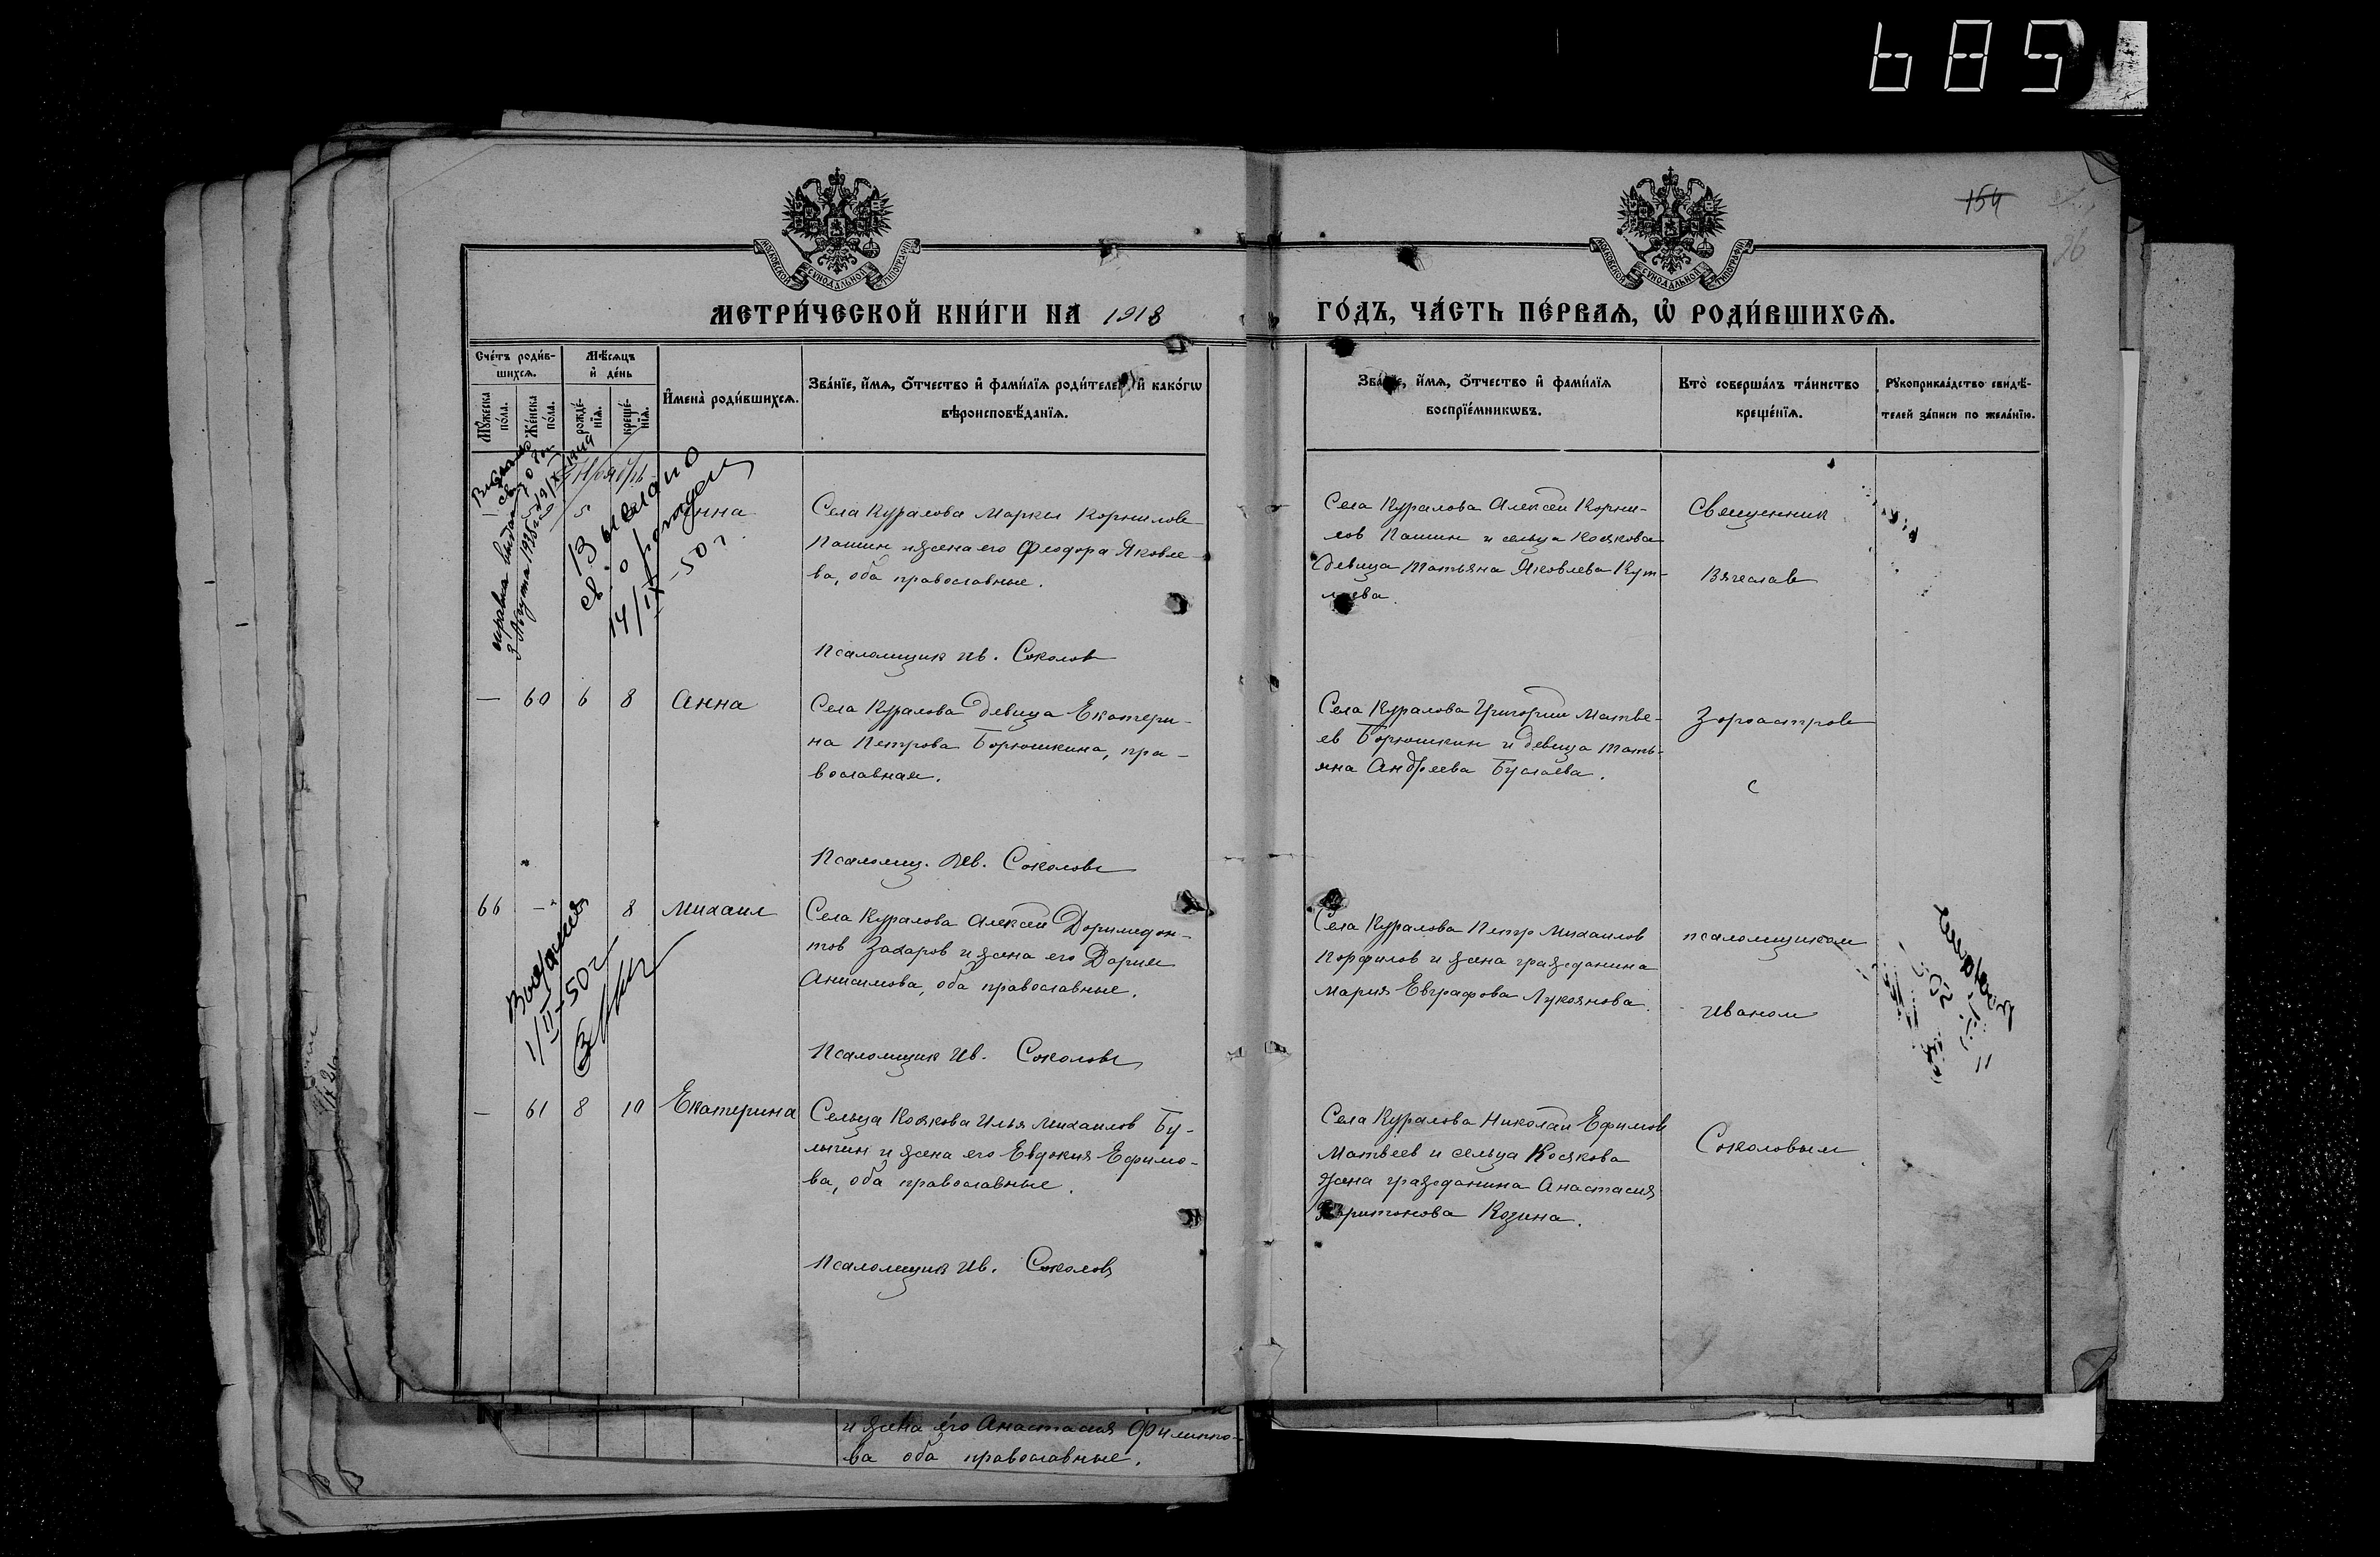 689
154
26
МОСКОВСКОЙ СУНОДАЛЬНОЙ ТИПОГРАФІИ
МОСКОВСКОЙ СУНОДАЛЬНОЙ ТИПОГРАФІИ
МЕТРИ́ЧЕСКОЙ КНИ́ГИ НА 1918
ГО́ДЪ, ЧА́СТЬ ПЕ́РВАѦ, Ѡ҆ РОДИ́ВШИХСѦ.
Сче́тъ роди́в-
шихсѧ.
Мꙋ́жеска по́ла.
Же́нска по́ла.
Мѣ́сѧцъ
и҆ де́нь
рожде́-
нїѧ.
креще́-
нїѧ.
И҆мена̀ роди́вшихсѧ.
Зва́нїе, и҆́мѧ, ѻ҆́тчество и҆ фами́лїѧ роди́телей, и҆ како́гѡ
вѣроисповѣ́данїѧ.
Зва́нїе, и҆́мѧ, ѻ҆́тчество и҆ фами́лїѧ
воспрїе́мникѡвъ.
Кто̀ соверша́лъ та́инство
креще́нїѧ.
Рꙋкоприкла́дство свидѣ́-
телей за́писи по жела́нїю.
5
Анна
Села Куралова Маркел Корнилов
Пашин и жена его Феодора Яковле-
ва, оба православные.
Псаломщик Ив. Соколов
Села Куралова Алексей Корни-
лов Пашин и сельца Косякова
девица Татьяна Яковлева
Священник
Вячеслав
выслано
св. о рожден
14/IX-50 г.
3 Августа 1935
— 60 6 8 Анна
Села Куралова девица Екатери-
на Петрова Борюшкина, пра-
вославная.
Псаломщ. Ив. Соколов
Села Куралова Григорий Матве-
ев Борюшкин и девица Тать-
яна Андреева Буслаева.
Зороастров
с
66 — 8 Михаил
Села Куралова Алексей Доримедон-
тов Захаров и жена его Дария
Анисимова, оба православные.
Псаломщик Ив. Соколов
1/II-50 г
Села Куралова Петр Михаилов
Порфилов и жена гражданина
Мария Евграфова Лукоянова.
псаломщиком
Иваном
— 61 8 10 Екатерина
Сельца Косякова Илья Михаилов Бу-
лыгин и жена его Евдокия Ефимо-
ва, оба православные.
Псаломщик Ив. Соколов
Села Куралова Николай Ефимов
Матвеев и сельца Косякова
жена гражданина Анастасия
Харитонова Козина.
Соколовым
и жена его Анастасия Филиппо-
ва оба православные.